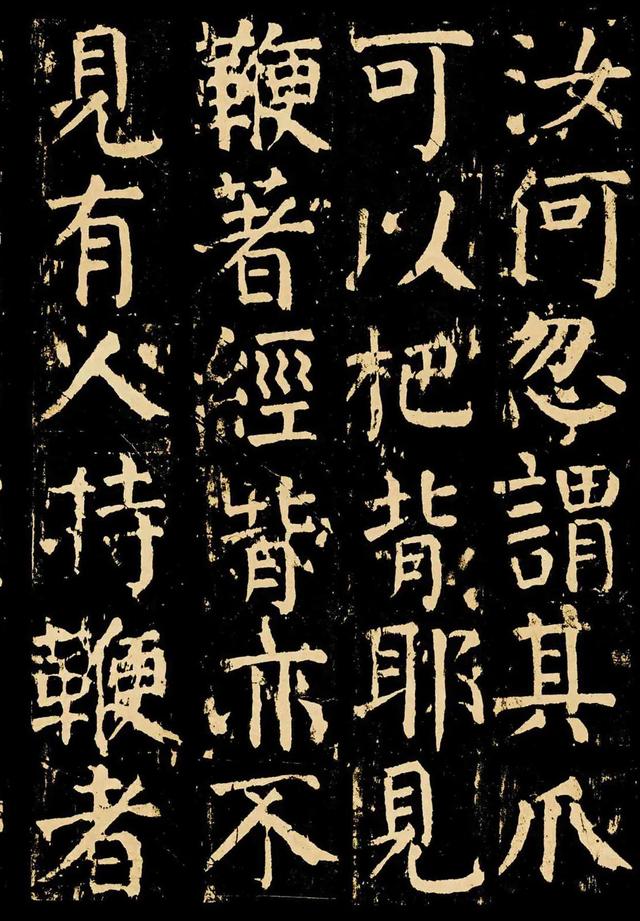 汝何忽謂其爪
可以杷背耶見
鞭著經背亦不
見有人持鞭者